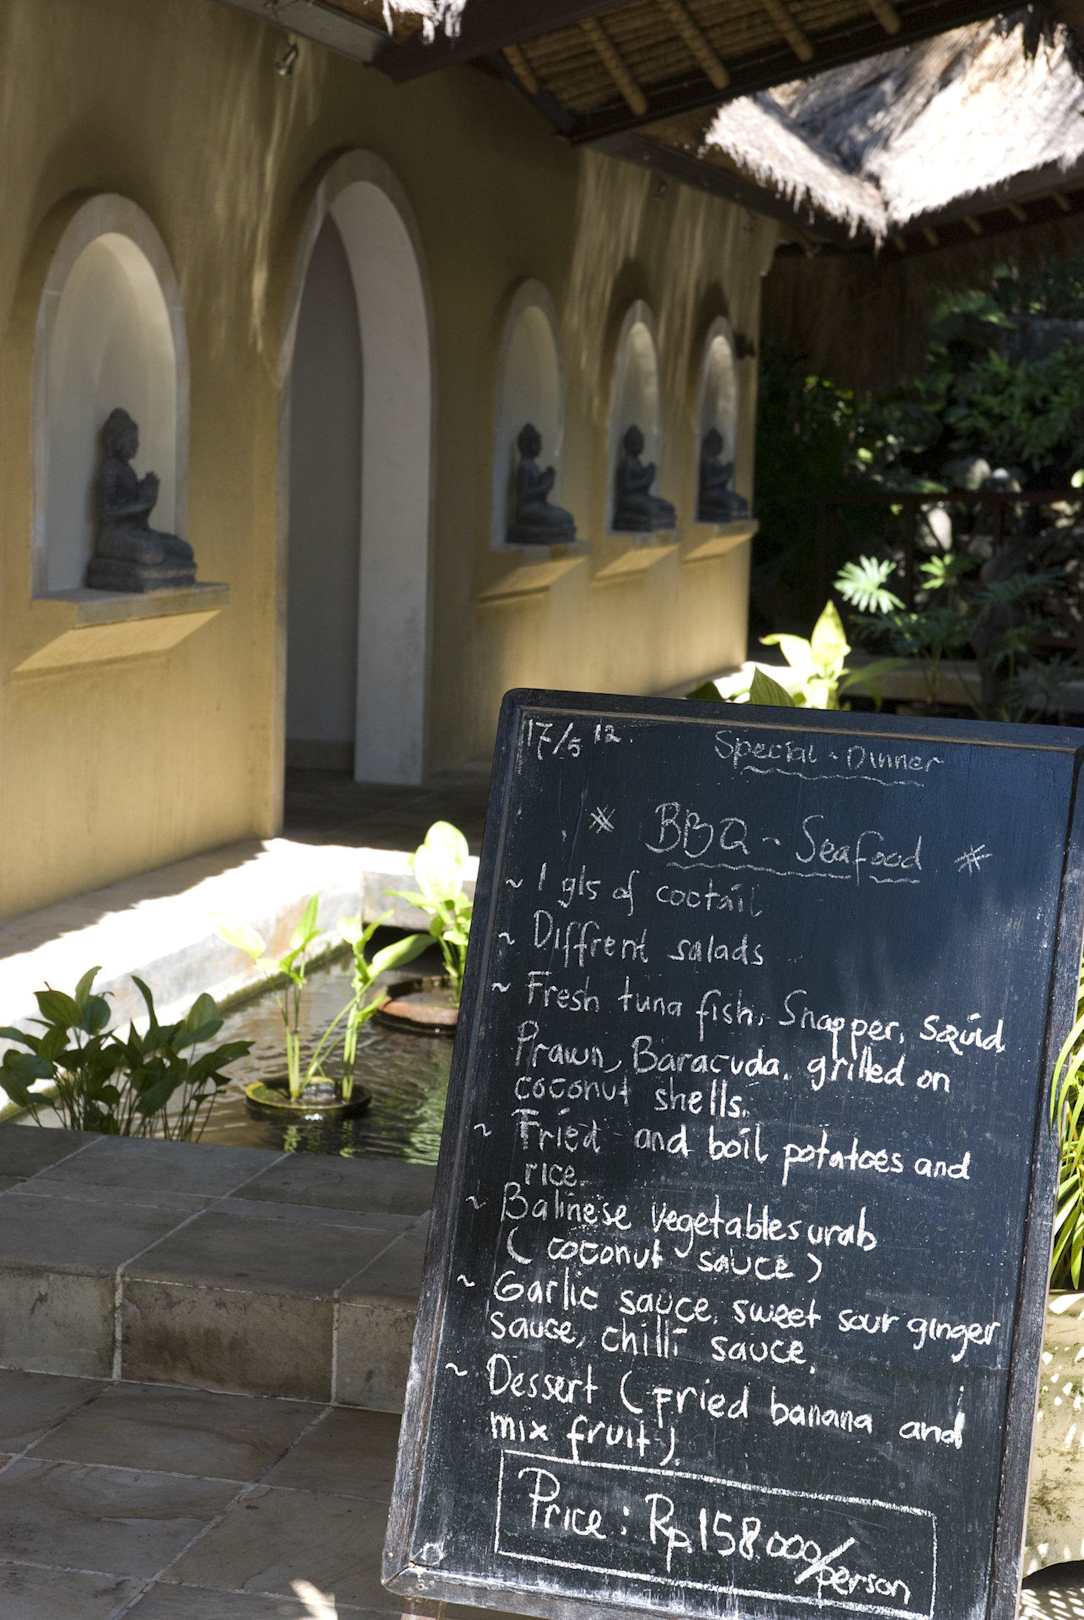 17/5 12.
Special - Dinner
* BBQ - Seafood *
~ 1 gls of coctail
~ Diffrent salads
~ Fresh tuna fish, Snapper, Squid,
Prawn, Baracuda, grilled on
coconut shells.
~ Fried and boil potatoes and
rice.
~ Balinese vegetables urab
( coconut sauce )
~ Garlic sauce, sweet sour ginger
sauce, chilli sauce.
~ Dessert ( Fried banana and
mix fruit ).
Price : Rp.158.000/person